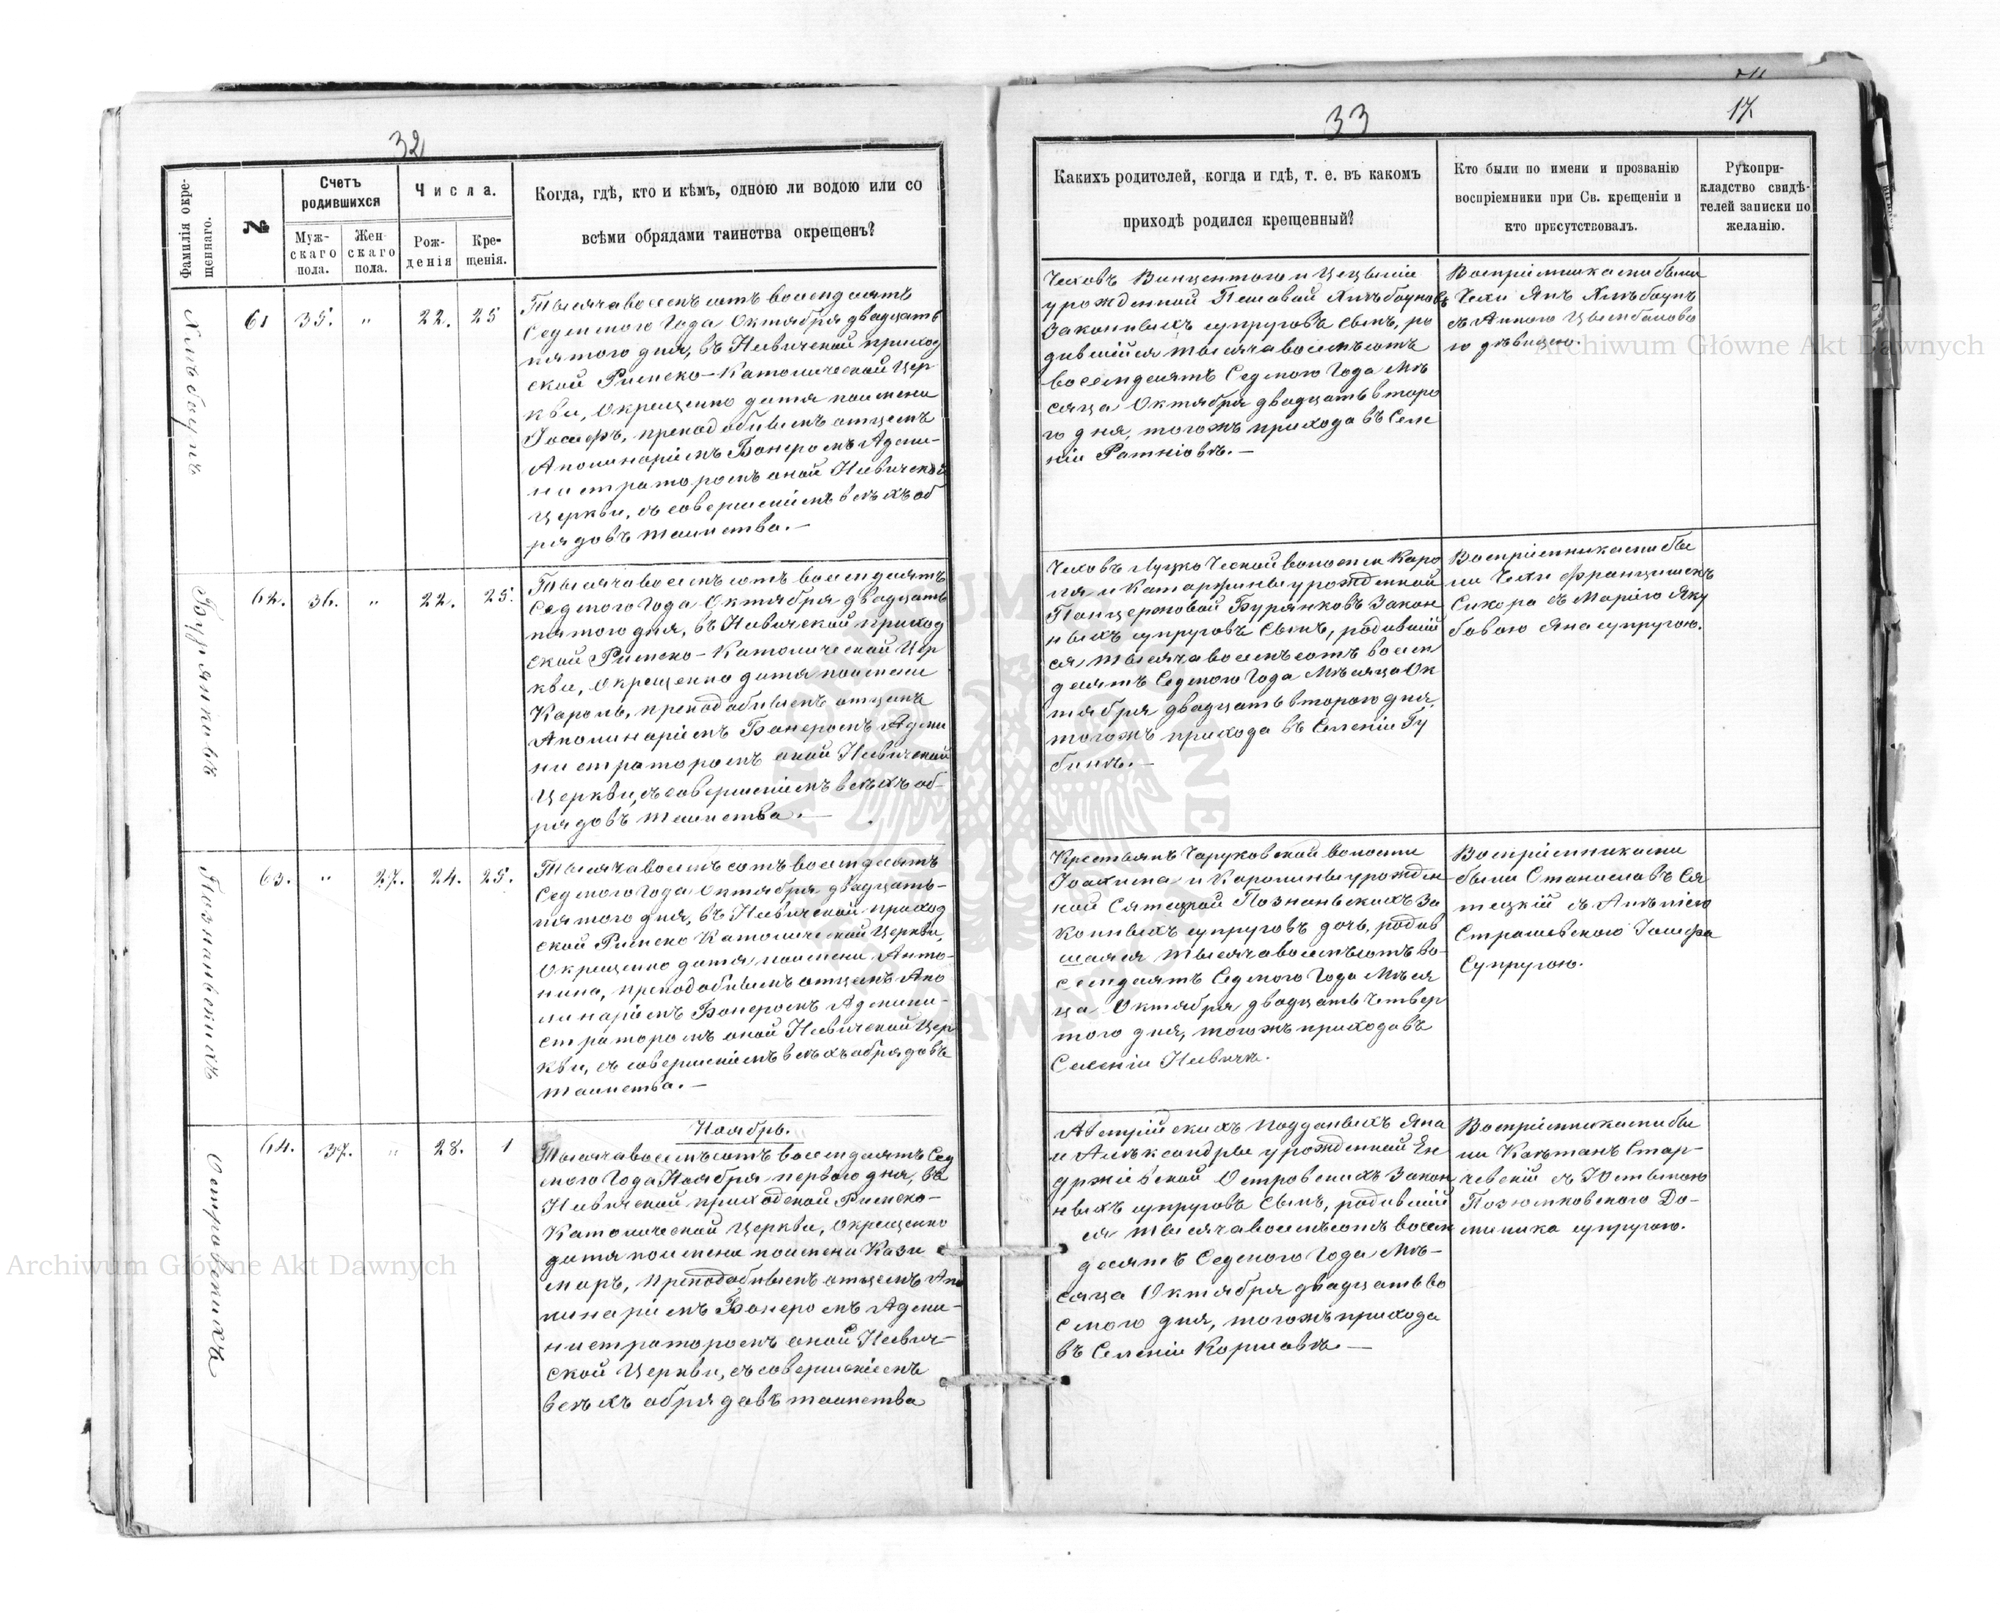 32
Фамилія окре-
щеннаго.
№
Счетъ
родившихся
Муж-
скаго
пола.
Жен-
скаго
пола.
Числа.
Рож-
денія
Кре-
щенія.
Когда, гдѣ, кто и кѣмъ, одною ли водою или со
всѣми обрядами таинства окрещенъ?
Хлѣбаунъ
61
35.
"
22.
25
Тысяча восемьсотъ восемдесятъ
Седмого Года Октября двадцать
пятого дня, въ Несвичской приход
ской Римско-Католической Цер
кви, окрещено дитя по имени
Іосифъ, преподобнымъ отцемъ
Аполинаріемъ Бонеромъ Адми-
нистраторомъ оной Несвичской
Церкви, съ совершеніемъ всѣхъ об
рядовъ таинства.—
Бурянковъ
62.
36.
"
22.
25.
Тысяча восемьсотъ восемдесятъ
Седмого Года Октября двадцать
пятого дня, въ Несвичской приход
ской Римско-Католической Цер
кви, окрещено дитя по имени
Кароль, преподобнымъ отцемъ
Аполинаріемъ Бонеромъ Адми
нистраторомъ оной Несвичской
Церкви, съ совершеніемъ всѣхъ об-
рядовъ таинства.—
Познанскихъ
63.
"
27.
24.
25.
Тысяча восемьсотъ восемдесятъ
Седмого Года Октября двадцать-
пятого дня, въ Несвичской приход
ской Римско Католической Церкви,
окрещено дитя по имени Анто-
нина, преподобнымъ отцемъ Апо
линаріемъ Бонеромъ Админи-
страторомъ оной Несвичской Цер
кви, съ совершеніемъ всѣхъ обрядовъ
таинства.—
Островскихъ
64.
37.
"
28.
1
Ноябрь.
Тысяча восемьсотъ восемдесятъ Сед
мого Года Ноября первого дня, въ
Несвичской приходской Римско-
Католической Церкви, окрещено
дитя по имени по имени Кази
миръ, преподобнымъ отцемъ Апо
линаріемъ Бонеромъ Адми-
нистраторомъ оной Несвич-
ской Церкви, съ совершеніемъ
всѣхъ обрядовъ таинства
33
17.
Какихъ родителей, когда и гдѣ, т. е. въ какомъ
приходѣ родился крещенный?
Кто были по имени и прозванію
воспріемники при Св. крещеніи и
кто присутствовалъ.
Рукопри-
кладство свидѣ-
телей записки по
желанію.
Чеховъ Винцентого и Цецыліи
урожденной Пешовой Хлѣбауновъ
Законныхъ супруговъ Сынъ, ро
дившійся тысяча восемьсотъ
восемдесятъ Седмого Года Мѣ
сяца Октября двадцать второ
го дня, тогожъ прихода въ Селе
ніи Ратніовѣ.—
Воспріемниками были
Чехи Янъ Хлѣбаунъ
съ Анною Цымбалово
ю дѣвицею.
Чеховъ Луцко Ческой волости Каро
ля и Катаржины урожденной
Панцержовой Бурянковъ Закон
ныхъ супруговъ Сынъ, родивший
ся тысяча восемьсотъ восем
десятъ Седмого Года Мѣсяца Ок
тября двадцать второго дня,
тогожъ прихода въ Селеніи Гу
бинѣ.—
Воспріемниками бы
ли Чехи Францишекъ
Сикора съ Маріею Яку
бовою Яна супругою.
Крестьянъ Чаруковской волости
Іоахима и Каролины урожден
ной Сятецкой Познанскихъ За
конныхъ супруговъ дочь, родив
шаяся тысяча восемьсотъ во-
семдесятъ Седмого Года Мѣся
ца Октября двадцать Четвер
того дня, тогожъ прихода въ
Селеніи Несвичѣ.
Воспріемниками
были Станиславъ Ся
тецкій съ Анѣлею
Страшевского Іосифа
Супругою.
Австрійскихъ подданыхъ Яна
и Александры урожденной Ен
држіевской Островскихъ Закон
ныхъ супруговъ Сынъ, родивший
ся тысяча восемьсотъ восем
десятъ Седмого Года Мѣ-
сяца Октября двадцать во
смого дня, тогожъ прихода
въ Селеніи Коршовѣ.—
Воспріемниками бы
ли Каетанъ Стар-
чевскій съ Юстыною
До-
миника супругою.
Archiwum Główne Akt Dawnych
Archiwum Główne Akt Dawnych
ARCHIWUM GŁÓWNE AKT DAWNYCH